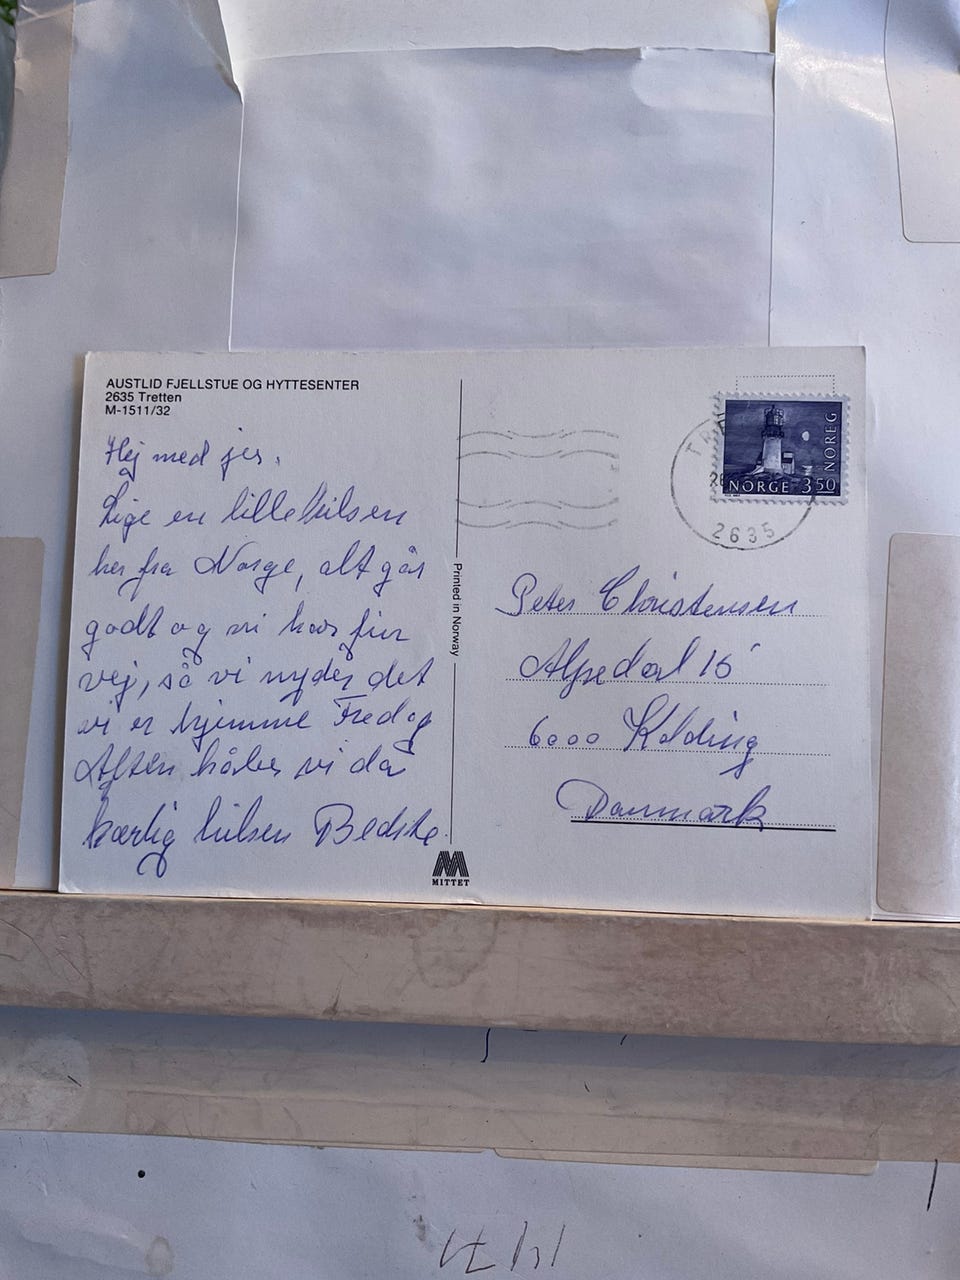 AUSTLID FJELLSTUE OG HYTTESENTER
2635 Tretten
M-1511/32
Hej med jer.
Lige en lille hilsen
her fra Norge, alt går
godt og vi har fin
vej, så vi nyder det
vi er hjemme Fredag
Aften håber vi da
kærlig hilsen Bedste.
Printed in Norway
MITTET
NOREG
NORGE 350
2635
Peter Christensen
Alpedal 16
6000 Kolding
Danmark